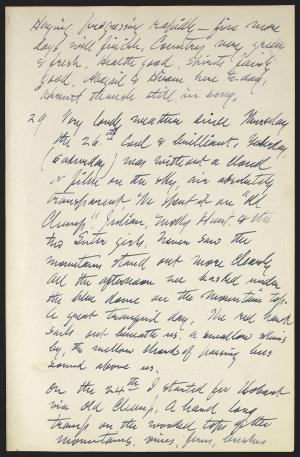 Haying progressing rapidly — five more
days will finish. Country very green
& fresh. Health good. Spirits fairly
good. Abigail & Hiram here to-day.
Hermit thrush still in song.
29 Very lovely weather since Thursday
the 26th. Cool & brilliant. Yesterday,
(Saturday) was without a cloud
or film on the sky, air absolutely
transparent. We spent it on "Old
Clump" Julian, Hunt & the
two Suter girls. Never saw the
mountains stand out more clearly.
All the afternoon we basked under
the blue dome on the mountain top.
A great tranquil day. The red hawk
sails out beneath us, a swallow skims
by, the mellow chords of passing bees
sound above us.
On the 24th I started for Hobart
via Old Clump. A hard long
tramp on the wooded tops of the
mountains. vines, ferns, bushes